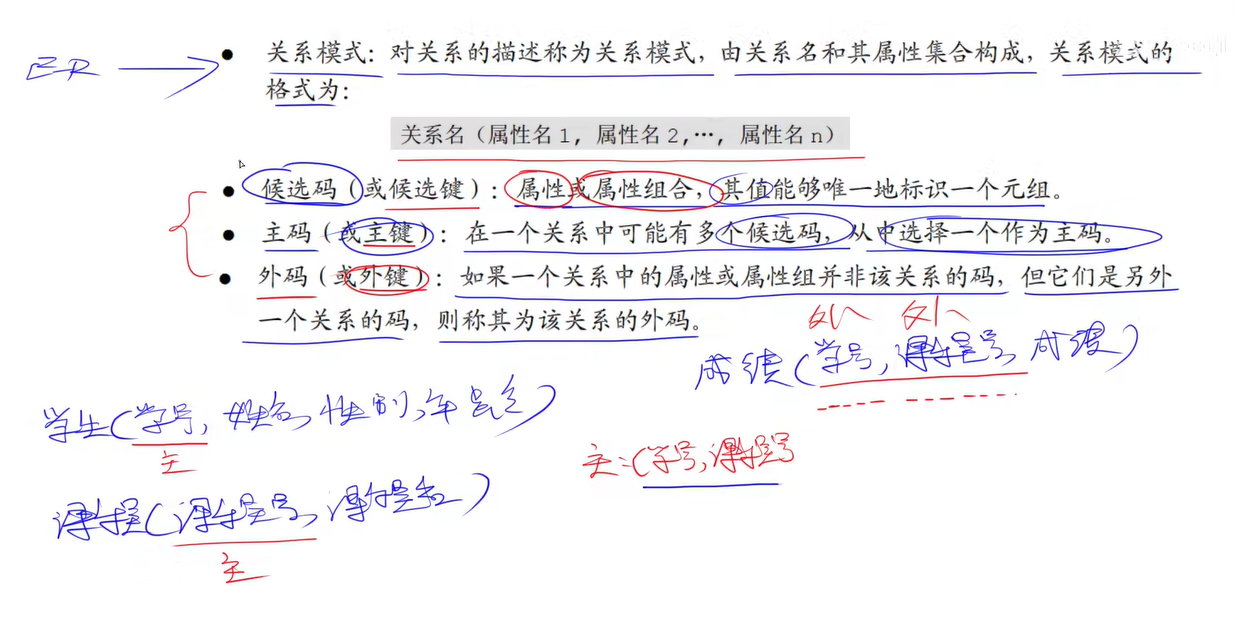 ER → ● 关系模式：对关系的描述称为关系模式，由关系名和其属性集合构成，关系模式的
格式为：
关系名（属性名1，属性名2,…，属性名n）
● 候选码（或候选键）：属性或属性组合，其值能够唯一地标识一个元组。
● 主码（或主键）：在一个关系中可能有多个候选码，从中选择一个作为主码。
● 外码（或外键）：如果一个关系中的属性或属性组并非该关系的码，但它们是另外
一个关系的码，则称其为该关系的外码。
外 外
成绩(学号,课程号,成绩)
学生(学号,姓名,性别,年龄)
主
主:(学号,课程号
课程(课程号,课程名)
主